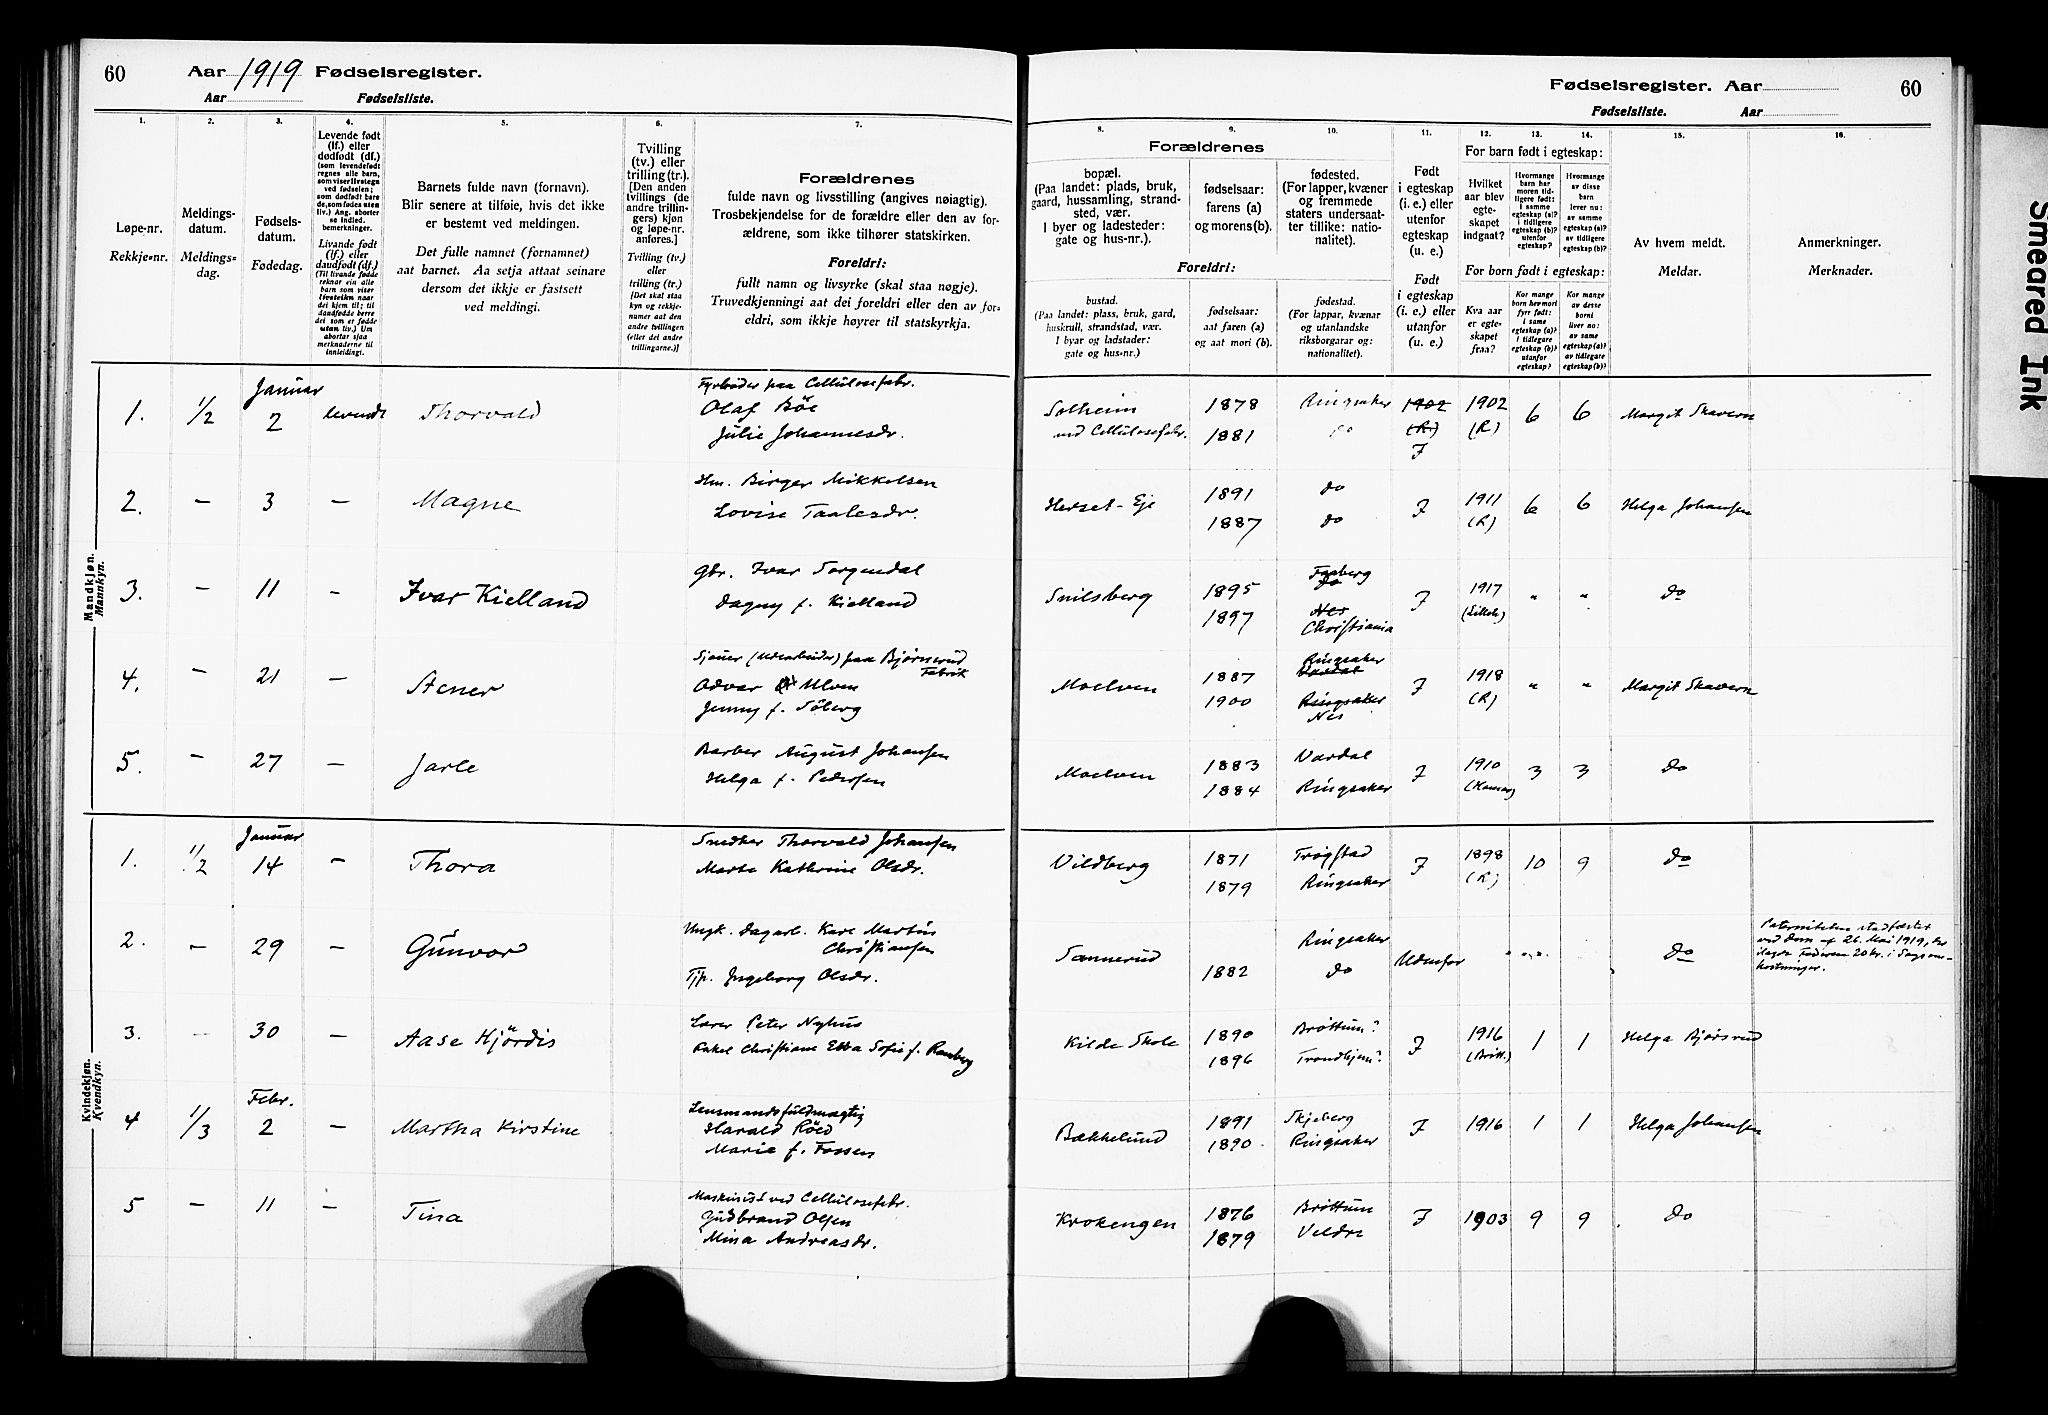 60 Aar 1919 Fødselsregister.
Aar Fødselsliste.
Fødselsregister. Aar 60
Fødselsliste. Aar
1. 2. 3. 4. 5. 6. 7. 8. 9. 10. 11. 12. 13. 14. 15. 16.
Løpe-nr.
Rekkje-nr.
Meldings-
datum.
Meldings-
dag.
Fødsels-
datum.
Fødedag.
Levende født
(lf.) eller
dødfødt (df.)
(som levendefødt
regnes alle barn,
som viser livstegn
ved fødselen;
som dødfødt bare
de, som fødes uten
liv.) Ang. aborter
se indled.
bemerkninger.
Livande født
(lf.) eller
daudfødt (df.)
(Til livande fødde
reknar ein alle
barn som viser
livsteikn naar
dei kjem til; til
daudfødde berre
dei som er fødde
utan liv.) Um
abortar sjaa
merknaderne til
innleiding).
Barnets fulde navn (fornavn).
Blir senere at tilføie, hvis det ikke
er bestemt ved meldingen.
Det fulle namnet (fornamnet)
aat barnet. Aa setja attaat seinare
dersom det ikkje er fastsett
ved meldingi.
Tvilling
(tv.) eller
trilling (tr.).
[Den anden
tvillings (de
andre trillin-
gers) kjøn
og løpe-nr.
anføres.]
Tvilling (tv.)
eller
trilling (tr.)
[Det skal staa
kyn og rekkje-
numer aat den
andre tvillingen
(eller dei andre
trillingarne.)]
Forældrenes
fulde navn og livsstilling (angives nøiagtig).
Trosbekjendelse for de forældre eller den av for-
ældrene, som ikke tilhører statskirken.
Foreldri:
fullt namn og livsyrke (skal staa nøgje).
Truvedkjenningi aat dei foreldri eller den av for-
eldri, som ikkje høyrer til statskyrkja.
Forældrenes
bopæl.
(Paa landet: plads, bruk,
gaard, hussamling, strand-
sted, vær.
I byer og ladesteder:
gate og hus-nr.).
fødselsaar:
farens (a)
og morens (b).
fødested.
(For lapper, kvæner
og fremmede
staters undersaat-
ter tillike: natio-
nalitet).
Foreldri:
bustad.
(Paa landet: plass, bruk, gard,
huskrull, strandstad, vær.
I byar og ladstader:
gate og hus-nr.)
fødselsaar:
aat faren (a)
og aat mori (b).
fødestad.
(For lappar, kvænar
og utanlandske
riksborgarar og:
nationalitet).
Født
i egteskap
(i. e.) eller
utenfor
egteskap
(u. e.)
Født
i egteskap
(i. e.) eller
utanfor
(u. e.)
For barn født i egteskap:
Hvilket
aar blev
egte-
skapet
indgaat?
Hvormange
barn har
moren tid-
ligere født:
i samme
egteskap (a)?
i tidligere
egteskap (b)?
utenfor
egteskap?
Hvormange
av disse
barn
lever nu:
av samme
egteskap (a)?
av tidligere
egteskap (b)?
For born født i egteskap:
Kva aar
er egte-
skapet
fraa?
Kor mange
born hev mori
fyrr født:
i same
egteskap (a)?
i tidlegare
egteskap (b)?
utanfor
egteskap?
Kor mange
av desse
borni
liver no:
av same
egteskap (a)?
av tidlegare
egteskap (b)?
Av hvem meldt.
Meldar.
Anmerkninger.
Merknader.
Mandkjøn.
Mannkyn.
Januar Fyrbøder paa Cellulosefabr.
1. 1/2 2 levende Thorvald Olaf Böe Solheim 1878 Ringsaker 1902 1902 6 6 Margit Skavern
Julie Johannesdr. ved Cellulosefabr. 1881 do (R.) (R.)
F
2. — 3 — Magne Hm. Birger Mikkelsen Herset-Eje 1891 do F 1911 6 6 Helga Johansen
Lovise Taalesdr. 1887 do (R)
3. — 11 — Ivar Kielland Gbr. Ivar Sorgendal Snilsberg 1895 Faaberg do F 1917 " " do
Dagny f. Kielland 1897 Nes (Lilleh)
Christiania
4. — 21 — Stener Sjauer (Udearbeider) paa Bjørnerud Fabrik
Odvar Ulven Moelven 1887 Ringsaker Vardal F 1918 " " Margit Skavern
Jenny f. Söberg 1900 Ringsaker (R)
Nes
5. — 27 — Jarle Barber August Johansen Moelven 1883 Vardal F 1910 3 3 do
Helga f. Pedersen 1884 Ringsaker
Kvindekjøn.
Kvendkyn.
Januar
1. 1/2 14 — Thora Snedker Thorvald Johansen Vildberg 1871 Trøgstad F 1898 10 9 do
Marte Kathrine Olsdr. 1879 Ringsaker (R)
2. — 29 — Gunvor Ungk. Dagarb. Karl Martin Christiansen Sannerud Ringsaker Udenfor " " " do
Tjp. Ingeborg Olsdr. 1882 do
Paterniteten stadfæstet
ved Dom af 26. Mai 1919, der
ilagde Faderen 20 kr. i Sagsom-
kostninger.
3. — 30 — Aase Hjördis Lærer Peter Nyhus Kilde Skole 1890 Brøttum? F 1916 1 1 Helga Bjørsrud
Rakel Christiane Ebba Sofie f. Ramberg 1896 Trondhjem? (Brøtt.)
Febr. Lensmandsfuldmægtig
4 1/3 2 — Martha Kirstine Harald Röed Bækkelund 1891 Skjeberg F 1916 1 1 Helga Johansen
Marie f. Fossen 1890 Ringsaker
5 — 11 — Tina Maskinist ved Cellulosefabr. Krokengen 1876 Brøttum F 1903 9 9 do
Gudbrand Olsen 1879 Veldre
Mina Andreasdr.
Smeared Ink